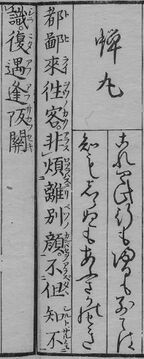 蟬丸
これやこの行もかへるもわかれては
知もしらぬもあふさかのせき
都鄙來往客。非煩離別顔。不但知不
識復遇逢阪關